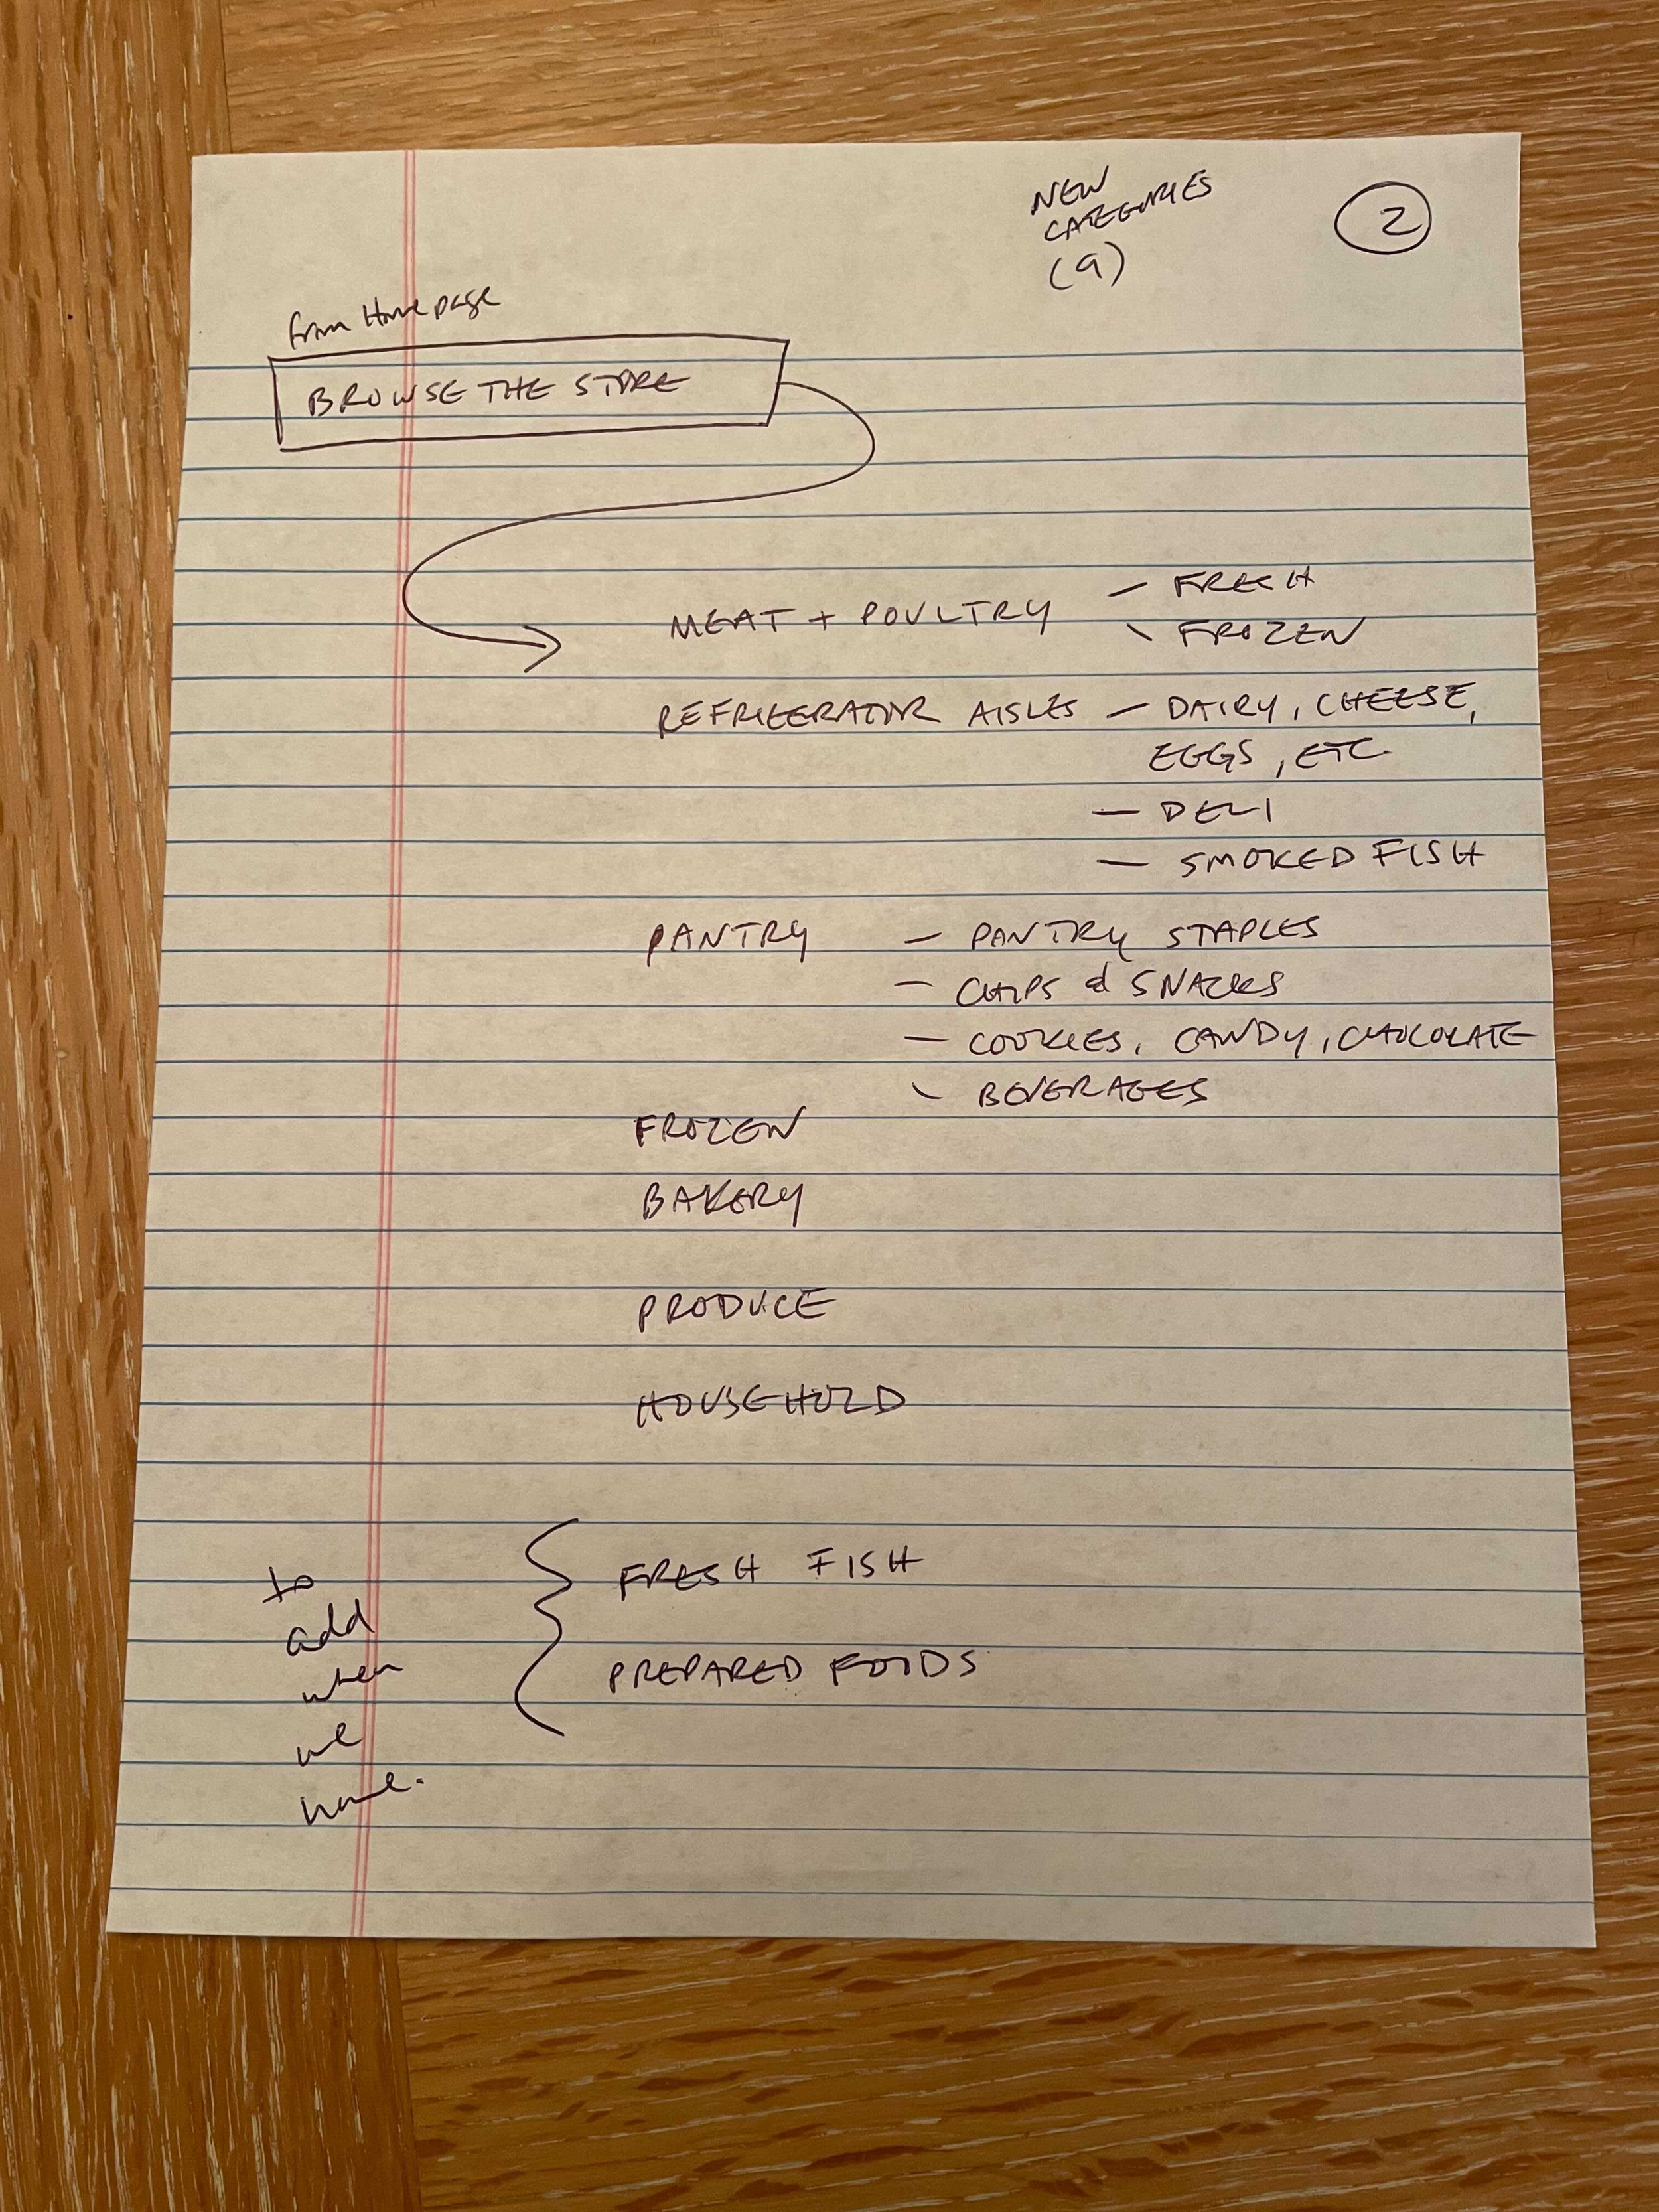 NEW
CATEGORIES
(9)
2
from Home page
BROWSE THE STORE
MEAT + POULTRY – FRESH
– FROZEN
REFRIGERATOR AISLES – DAIRY, CHEESE,
EGGS, ETC.
– DELI
– SMOKED FISH
PANTRY – PANTRY STAPLES
– CHIPS & SNACKS
– COOKIES, CANDY, CHOCOLATE
– BEVERAGES
FROZEN
BAKERY
PRODUCE
HOUSEHOLD
to
add
when
we
FRESH FISH
PREPARED FOODS